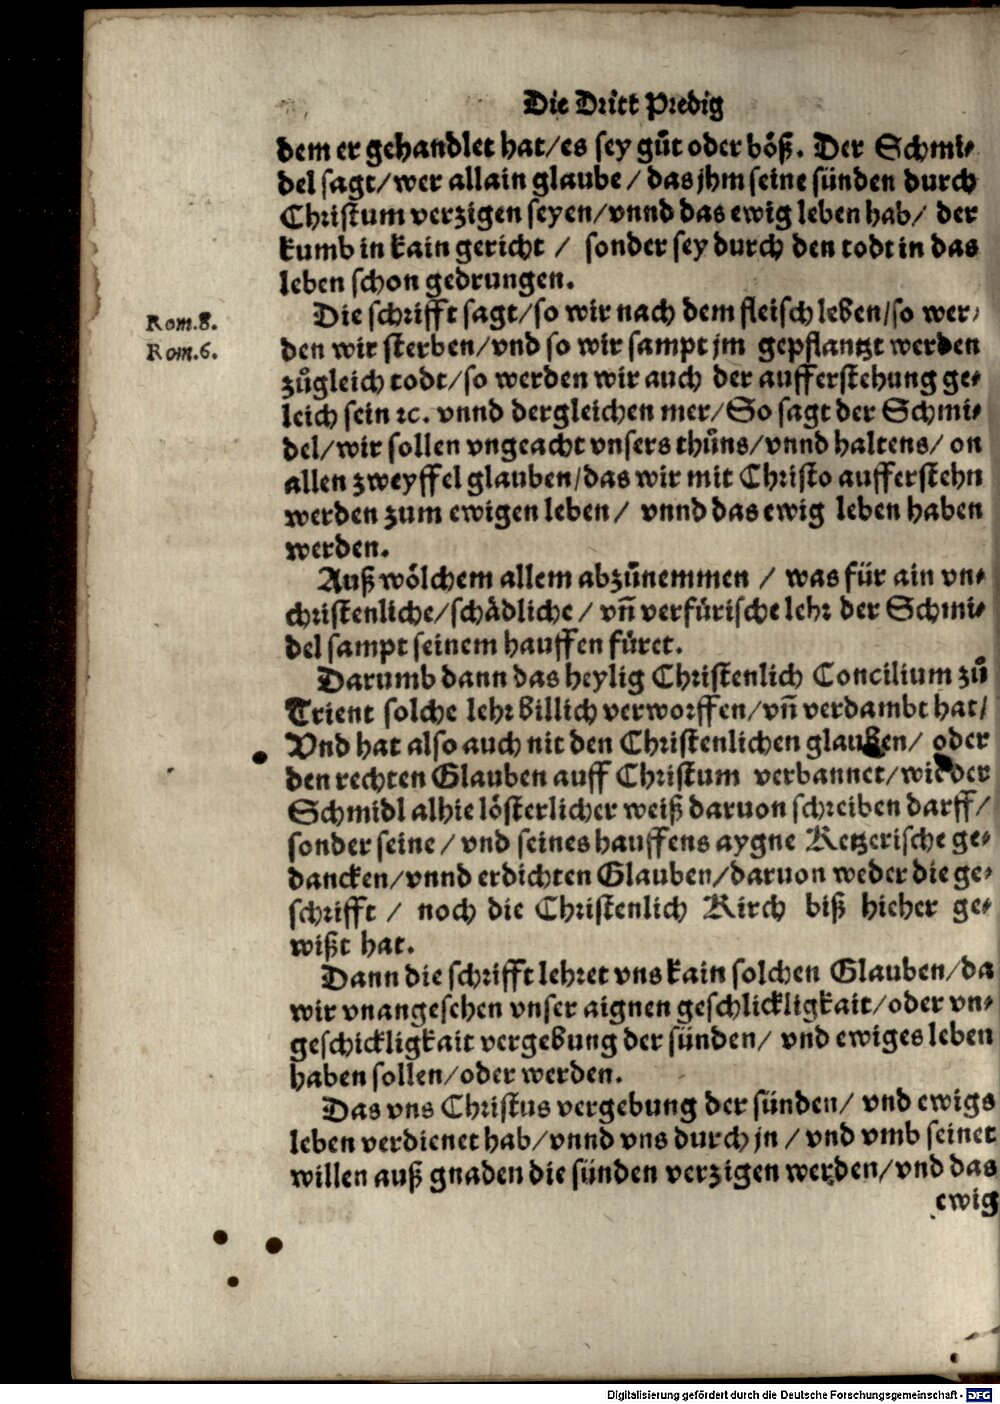 Die Dritt Predig
dem er gehandlet hat/es sey gůt oder böß. Der Schmi⸗
del sagt/wer allain glaube/das jhm seine sünden durch
Christum verzigen seyen/vnnd das ewig leben hab/ der
kumb in kain gericht / sonder sey durch den todt in das
leben schon gedrungen.
Die schrifft sagt/so wir nach dem fleisch leben/so wer⸗
Rom.8.
den wir sterben/vnd so wir sampt jm gepflantzt werden
Rom.6.
zůgleich todt/so werden wir auch der aufferstehung ge⸗
leich sein ꝛc. vnnd dergleichen mer/So sagt der Schmi⸗
del/wir sollen vngeacht vnsers thůns/vnnd haltens/ on
allen zweyffel glauben/das wir mit Christo aufferstehn
werden zum ewigen leben/ vnnd das ewig leben haben
werden.
Auß wölchem allem abzůnemmen / was für ain vn⸗
christenliche/schädliche/ vñ verfürische lehr der Schmi⸗
del sampt seinem hauffen füret.
Darumb dann das heylig Christenlich Concilium zů
Trient solche lehr billich verworffen/vñ verdambt hat/
Vnd hat also auch nit den Christenlichen glauben/ oder
den rechten Glauben auff Christum verbannet/wie der
Schmidl alhie lösterlicher weiß daruon schreiben darff/
sonder seine/ vnd seines hauffens aygne Ketzerische ge⸗
dancken/vnnd erdichten Glauben/daruon weder die ge⸗
schrifft / noch die Christenlich Kirch biß hieher ge⸗
wißt hat.
Dann die schrifft lehret vns kain solchen Glauben/da
wir vnangesehen vnser aignen geschlickligkait/oder vn⸗
geschickligkait vergebung der sünden/ vnd ewiges leben
haben sollen/oder werden.
Das vns Christus vergebung der sünden/ vnd ewigs
leben verdienet hab/vnnd vns durch jn / vnd vmb seinet
willen auß gnaden die sünden verzigen werden/vnd das
ewig
Digitalisierung gefördert durch die Deutsche Forschungsgemeinschaft - DFG